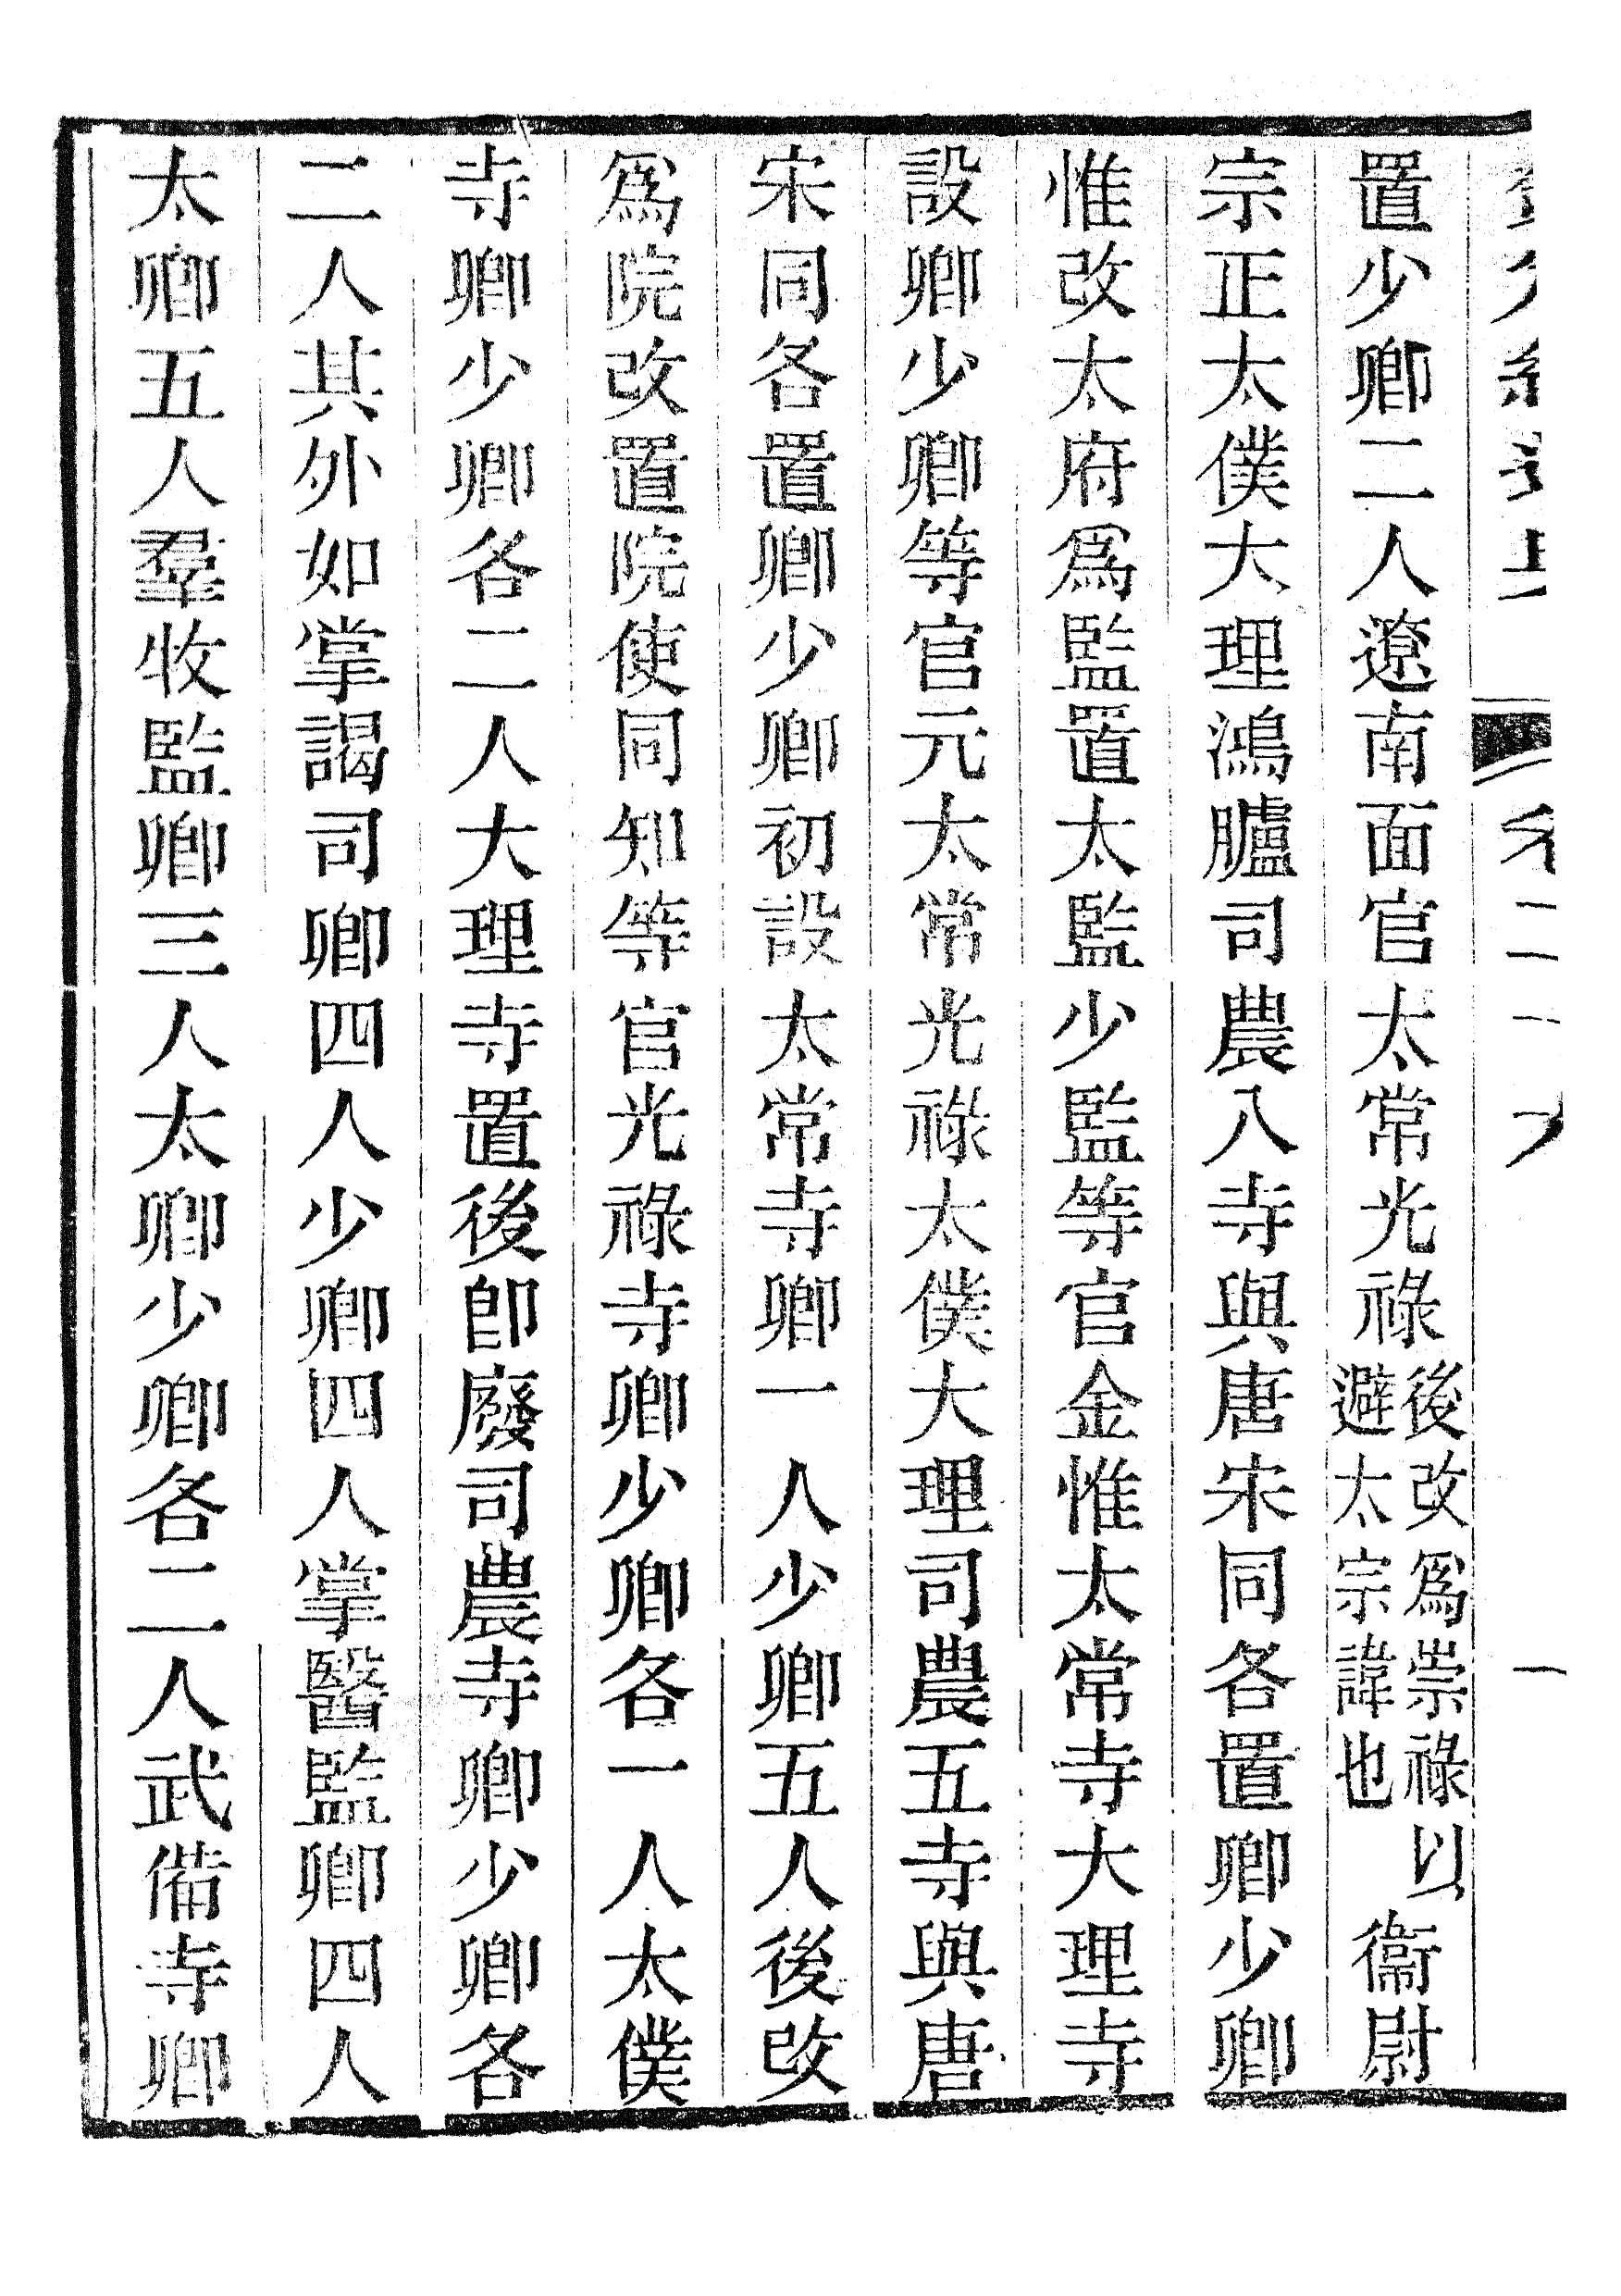 置少卿二人遼南面官太常光祿後改爲崇祿以避太宗諱也衞尉
宗正太僕大理鴻臚司農八寺與唐宋同各置卿少卿
惟改太府爲監置太監少監等官金惟太常寺大理寺
設卿少卿等官元太常光祿太僕大理司農五寺與唐
宋同各置卿少卿初設太常寺卿一人少卿五人後改
爲院改置院使同知等官光祿寺卿少卿各一人太僕
寺卿少卿各二人大理寺置後卽廢司農寺卿少卿各
二人其外如掌謁司卿四人少卿四人掌醫監卿四人
太卿五人羣牧監卿三人太卿少卿各二人武備寺卿